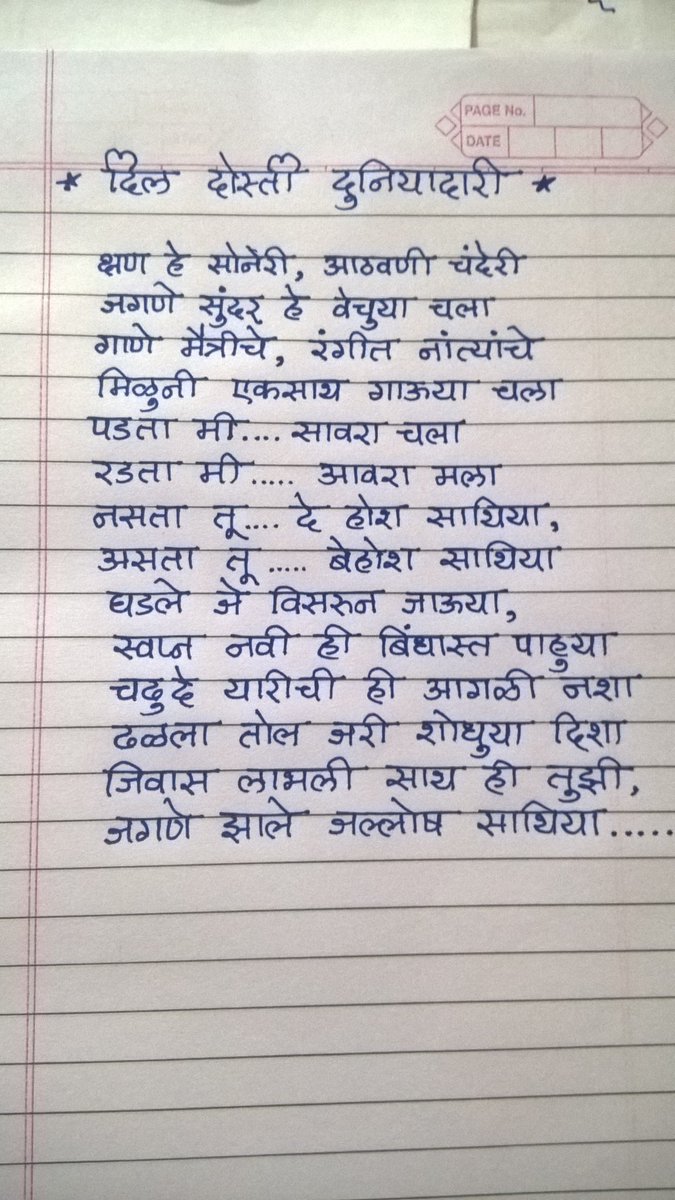 PAGE No.
DATE
* दिल दोस्ती दुनियादारी *
क्षण हे सोनेरी, आठवणी चंदेरी
जगणे सुंदर हे वेचुया चला
गाणे मैत्रीचे, रंगीत नांत्यांचे
मिळुनी एकसाथ गाऊया चला
पडता मी.... सावरा चला
रडता मी..... आवरा मला
नसता तू.... दे होश साथिया,
असता तू ..... बेहोश साथिया
घडले जे विसरुन जाऊया,
स्वप्न नवी ही बिंधास्त पाहुया
चढुदे यारीची ही आगळी नशा
ढळला तोल जरी शोधुया दिशा
जिवास लाभली साथ ही तुझी,
जगणे झाले जल्लोष साथिया.....